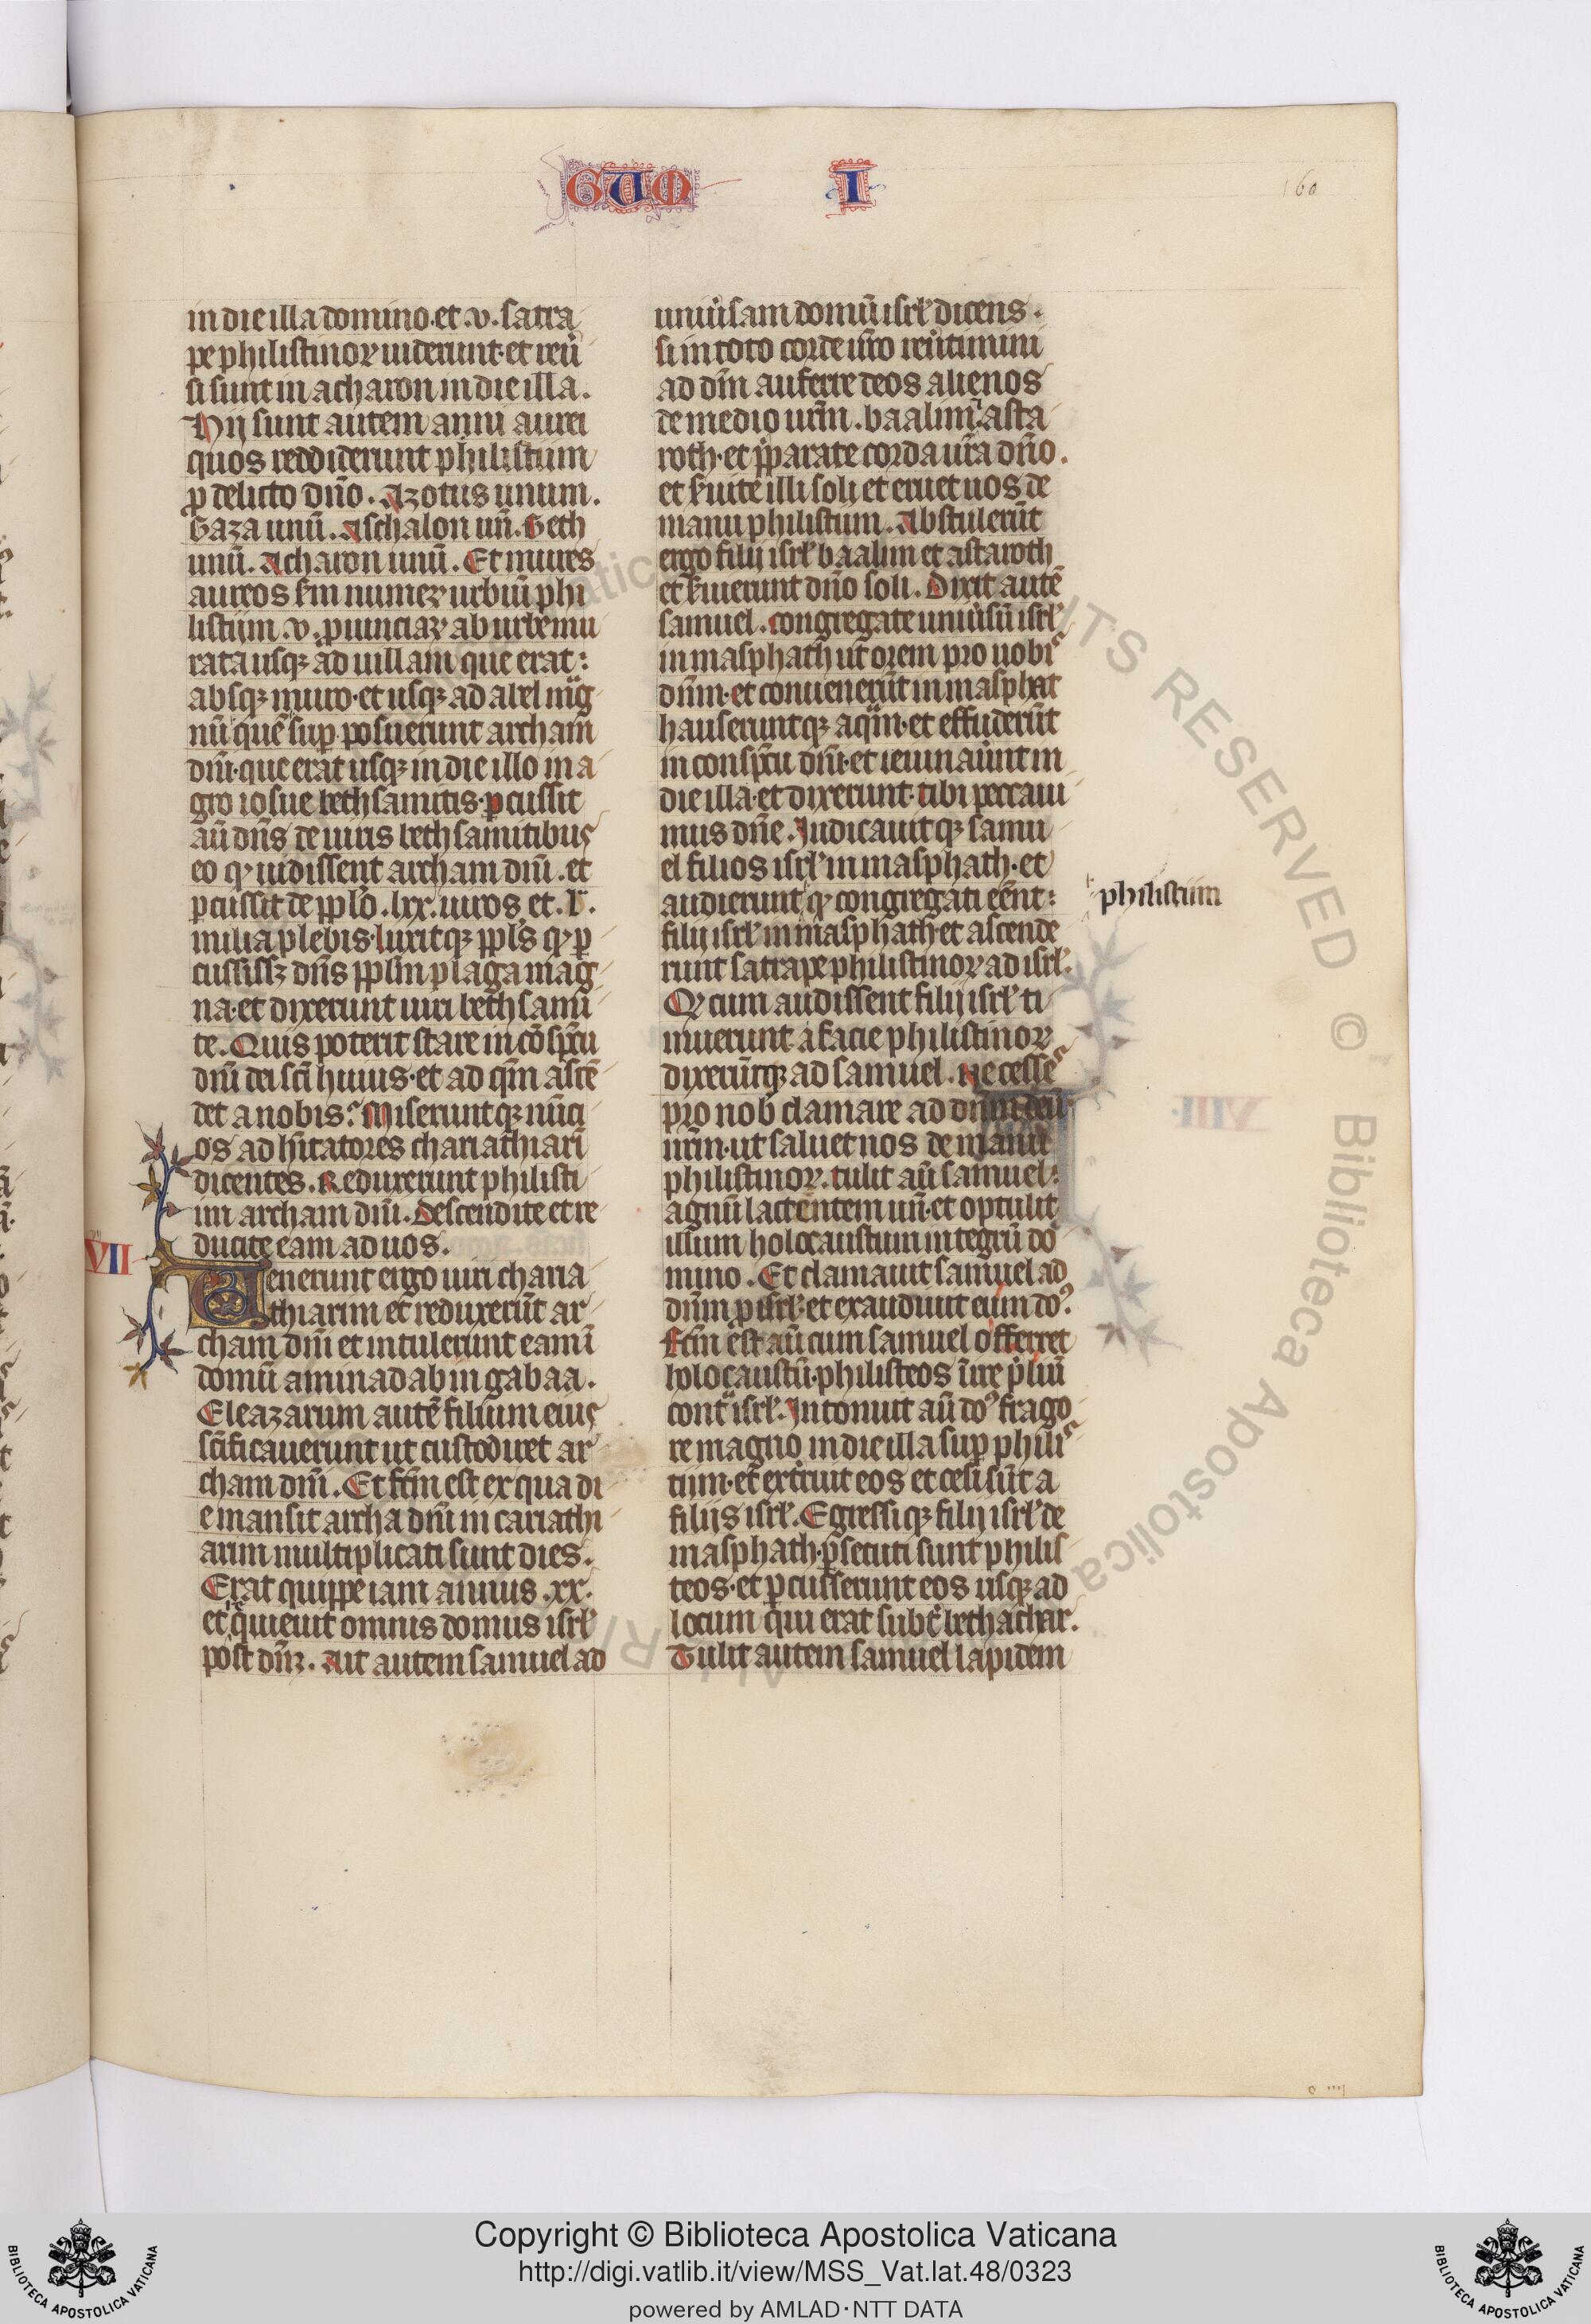 GUM I
160
in die illa domino. et .v. satra
pe philistinoꝝ uiderunt. et reu̾
si sunt in acharon in die illa.
Hij sunt autem anni aurei
quos reddiderunt philistiim
ꝓ delicto dn̄o. Azotus unum.
Gaza unū. Aschalon un̄. Geth
unū. Acharon unū. Et mures
aureos scd̄m numeꝝ urbiū phi
listiim .v. ꝓuinciaꝝ ab urbe mu
rata usqꝫ ad uillam que erat:
absqꝫ muro. et usqꝫ ad abel mͣg
nū quē suꝑ posuerunt archam
dn̄i. que erat usqꝫ in die illo in a
gro iosue bethsamitis. ꝑcussit
aū dn̄s de uiris bethsamitibus
eo ꝙ uidissent archam dn̄i. et
ꝑcussit de pp̄lo .lxx. uiros et .l.
milia plebis. luxitqꝫ pp̄ls ꝙ ꝑ
cussissꝫ dn̄s pp̄lm plaga mag
na. et dixerunt uiri bethsami
te. Quis poterit stare in cōspc̄tu
dn̄i dei sc̄i huius. et ad q̄m ascē
det a nobis? Miseruntqꝫ nūci
os ad hītatores chariathiari̅
dicentes. Reduxerunt philisti
im archam dn̄i. Descendite et re
ducite eam ad uos.
VII
Uenerunt ergo uiri charia
thiarim et reduxerūt ar
cham dn̄i et intulerunt eam ī
domū aminadab in gabaa.
Eleazarum autē filium eius
sc̄ificauerunt ut custodiret ar
cham dn̄i. Et fc̄m est ex qua di
e mansit archa dn̄i in cariathi
arim multiplicati sunt dies.
Erat quippe iam annus .xx.
et re q̇euit omnis domus isrl̄
post dn̄ꝫ. Ait autem samuel ad
uniu̾sam domū isrl̄ dicens.
si in toto corde ur̄o reu̾timini
ad dn̄m auferte deos alienos
de medio ur̄m. baalim. ⁊ asta
roth. et p̄parate corda ur̄a dn̄o.
et s̾uite illi soli et eruet uos de
manu philistiim. Abstulerūt
ergo filij isrl̄ baalim et astaroth
et s̾uierunt dn̄o soli. Dixit autē
samuel. congregate uniu̾sū isrl̄
in masphath ut orem pro uobis
dn̄m. et conuenerūt in masphat
hauseruntqꝫ aqͣm. et effuderūt
in conspc̄tu dn̄i. et ieiunau̾unt in
die illa. et dixerunt. tibi peccaui
mus dn̄e. Iudicauitqꝫ samu
el filios isrl̄ in masphath. et
audierunt ꝙ congregati eēnt:
philistiim
filij isrl̄ in masphath. et ascende
runt satrape philistinoꝝ ad isrl̄.
Qꝫ cum audissent filij isrl̄ ti
muerunt a facie philistinoꝝ
dixerūtqꝫ ad samuel. Ne cesses
pro nob̄ clamare ad dn̄m deū
nr̄m. ut saluet nos de manu
philistinoꝝ. tulit aū samuel:
agnū lactentem un̄. et optulit
illum holocaustum integrū do
mino. Et clamauit samuel ad
dn̄m ꝓ isrl̄. et exaudiuit eum doꝰ.
Fc̄m est aū cum samuel offerret
holocaustū. philisteos īire p̄liū
contͣ isrl̄. Intonuit aū doꝰ frago
re magno in die illa suꝑ philis
tiim. et ext̾ruit eos et cesi sūt a
filijs isrl̄. Egressiqꝫ filij isrl̄ de
masphath. ꝑsecuti sunt philis
teos. et ꝑcusserunt eos usqꝫ ad
locum qui erat subt̾ bethachar.
Tulit autem samuel lapidem
Copyright © Biblioteca Apostolica Vaticana
http://digi.vatlib.it/view/MSS_Vat.lat.48/0323
powered by AMLAD·NTT DATA
BIBLIOTECA APOSTOLICA VATICANA
BIBLIOTECA APOSTOLICA VATICANA